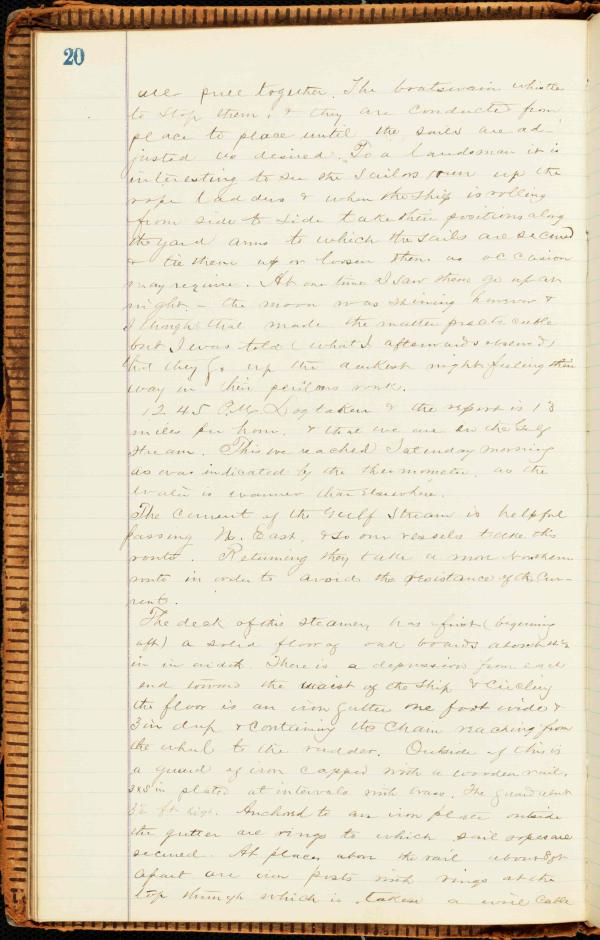 20
all pull together. The boatswain whistles
to stop them, & they are conducted from
place to place until the sails are ad-
justed as desired. To a landsman it is
interesting to see the sailors run up the
rope ladders & when the ship is rolling
from side to side take their positions along
the yard arms to which the sails are secured
& tie them up or loosen them as occasion
may require. At one time I saw them go up at
night - the moon was shining however &
I thought that made the matter practicable
but I was told (what I afterwards observed)
that they go up the darkest night feeling their
way in their perilous work.
12.45 P.M. Log taken & the report is 13
miles per hour, & that we are in the Gulf
Stream. This we reached Saturday morning
as was indicated by the thermometer, as the
water is warmer than elsewhere.
The current of the Gulf Stream is helpful
passing N. East, & so our vessels take this
route. Returning they take a more Northern
route in order to avoid the resistance of the Cur-
rent.
The deck of this steamer has first (beginning
aft) a solid floor of oak boards about
in in width. There is a depression from each
end toward the waist of the ship & Circling
the floor is an iron gutter one foot wide &
3 in deep & containing the Chain reaching from
the wheel to the rudder. Outside of this is
a guard of iron capped with a wooden rail,
3x8 in plated at intervals with brass. The guard about
3½ ft high. Anchord to an iron place outside
the gutter are rings to which sail ropes are
secured. At places upon the rail about 8 ft
apart are iron posts with rings at the
top through which is taken a wire cable